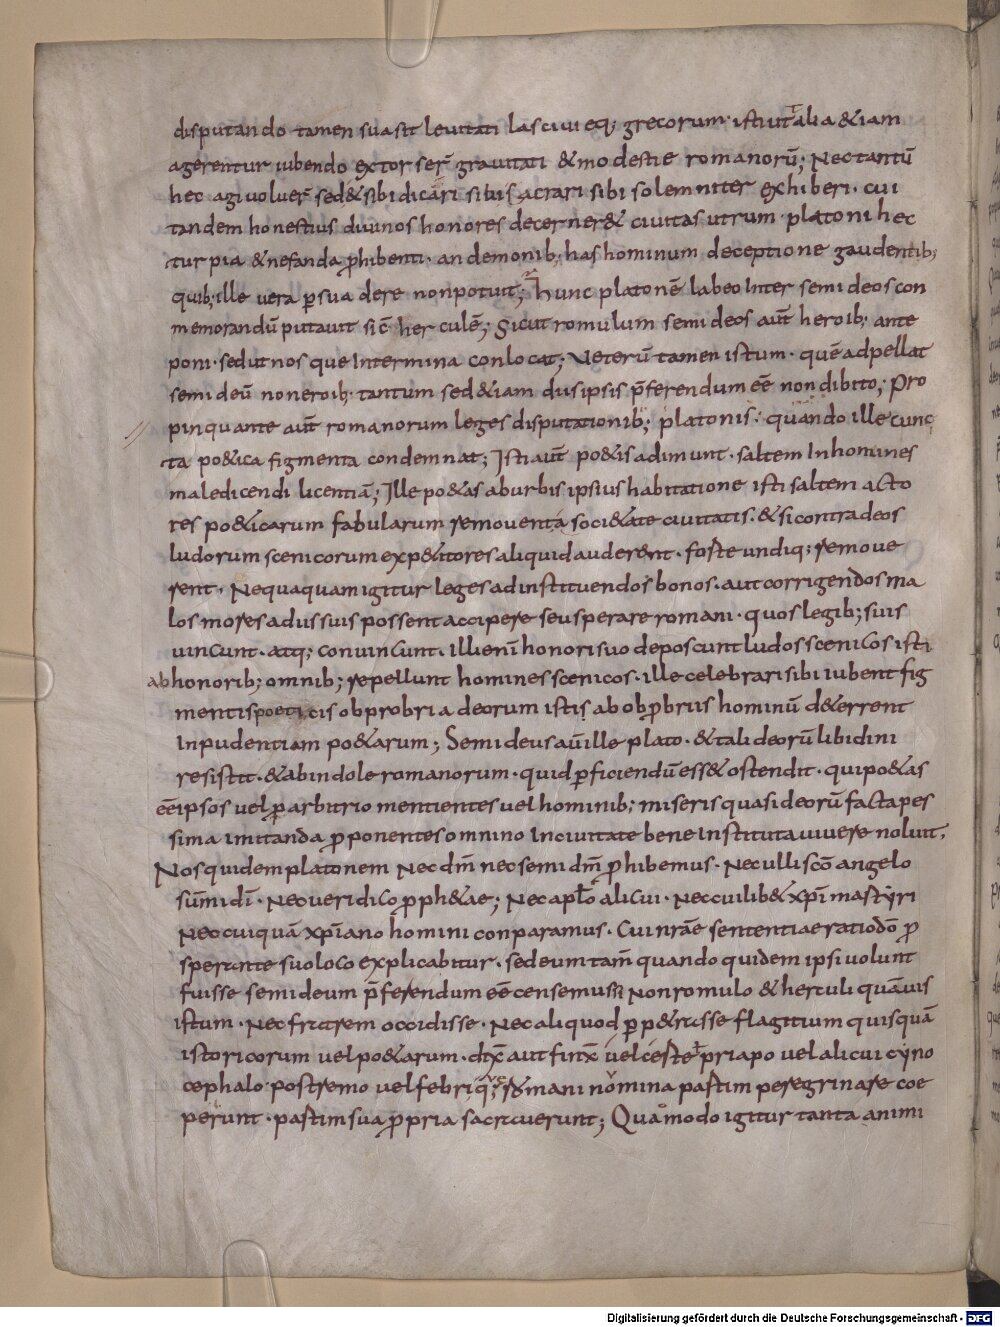 disputando tamen suasit leuitati lasciuieq; grecorum· isti ut alia &iam
agerentur iubendo extorser̄ grauitati & modestie romanorū; Nec tantū
hec agi voluer̄ sed& sibi dicari sibi sacrari sibi solemniter exhiberi· cui
tandem honestius diuinos honores decerner& ciuitas utrum· platoni hec
turpia & nefanda p̄hibenti· an demonib; has hominum deceptione gaudentib;
quib; ille uera persuadere non potuit; Hunc platonē labeo Inter semideos con
memorandū putauit sic̄ herculē; Sicut romulum semideos aut̄ heroib; ante
poni· sed utrosque Inter mina conlocat; Veterū tamen istum· quē adpellat
semideū non eroib; tantum sed &iam dus ipsis p̄ferendum eē non dibito; Pro
pinquante aut̄ romanorum leges disputationib; platonis· quando ille cunc
ta po&ica figmenta condemnat; Isti aut̄ po&is adimunt· saltem In homines
maledicendi licentiā; Ille po&as ab urbis ipsius habitatione isti saltem acto
res po&icarum fabularum remouent a soci&ate ciuitatis· & si contra deos
ludorum scenicorum exp&itores aliquid auderent· foste undiq; remoue
rent· Nequaquam igitur leges ad instituendos bonos· aut corrigendos ma
los mores a dus suis possent accipere seu sperare romani· quos legib; suis
uincunt· atq; conuincunt· Illi enī honori suo deposcunt ludos scenicos isti
ab honorib; omnib; repellunt homines scenicos· ille celebrari sibi iubent fig
mentis poeticis obprobria deorum istis ab obp̄briis hominū d&errent
Inpudentiam po&arum; Semideus aū ille plato· & tali deorū libidini
resistit· & ab indole romanorum· quid p̄ficiendū ess& ostendit· qui po&as
eē ipsos uel p̄ arbitrio mentientes uel hominib; miseris quasi deorū facta pes
sima imitanda p̄ponentes omnino In ciuitate bene Instituta uiuere noluit,
Nos quidem platonem Nec dm̄ nec semidm̄ p̄hibemus· Nec ulli sco̅ angelo
sūmi dī· Nec ueridico p̄ph&ae; Nec apl̄o alicui· Nec cuilib& xp̄i mastyri
Nec cuiquā xp̄iano homini conparamus· Cui nr̄ae sententiae ratio dō p̄
sperante suo loco explicabitur· sed eum tam̄ quando quidem ipsi uolunt
fuisse semideum p̄ferendum eē censemus si Non romulo & herculi quāuis
istum· Nec fratrem occidisse· Nec aliquod p̄p&rasse flagitium quisquā
istoricorum uel po&arum· dix̄ aut finx̄ uel ceste priapo uel alicui cyno
cephalo· postremo uel febri q̄; romani nomina pastim peregrina re coe
perunt· pastim sua p̄pria sacrauerunt; Quamodo igitur tanta animi
Digitalisierung gefördert durch die Deutsche Forschungsgemeinschaft - DFG